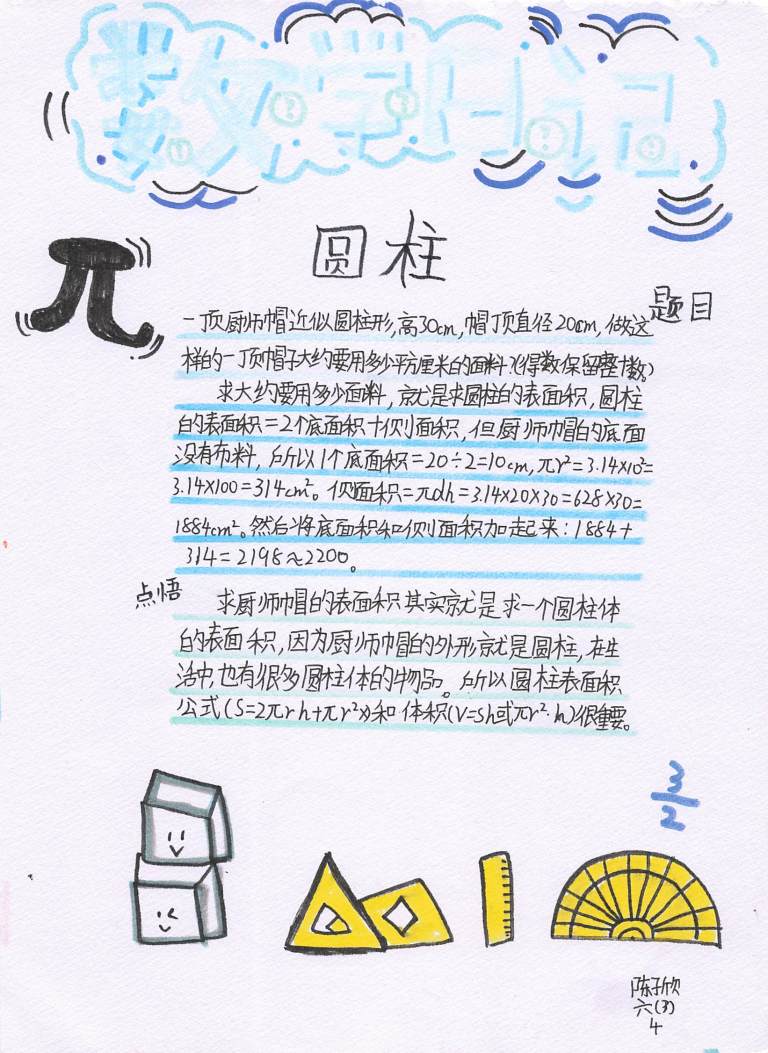 数学日记
圆柱
题目
一顶厨师帽近似圆柱形,高30cm,帽顶直径20cm,做这
样的一顶帽子大约要用多少平方厘米的面料?(得数保留整十数。)
求大约要用多少面料,就是求圆柱的表面积,圆柱
的表面积=2个底面积+侧面积,但厨师帽的底面
没有布料,所以1个底面积=20÷2=10cm,πr²=3.14×10²=
3.14×100=314cm²。侧面积=πdh=3.14×20×30=628×30=
1884cm²。然后将底面积和侧面积加起来:1884+
314=2198≈2200。
点悟
求厨师帽的表面积其实就是求一个圆柱体
的表面积,因为厨师帽的外形就是圆柱,在生
活中,也有很多圆柱体的物品。所以圆柱表面积
公式(S=2πrh+πr²×)和体积(V=sh或πr²·h)很重要。
3
2
陈子欣
六(3)
4